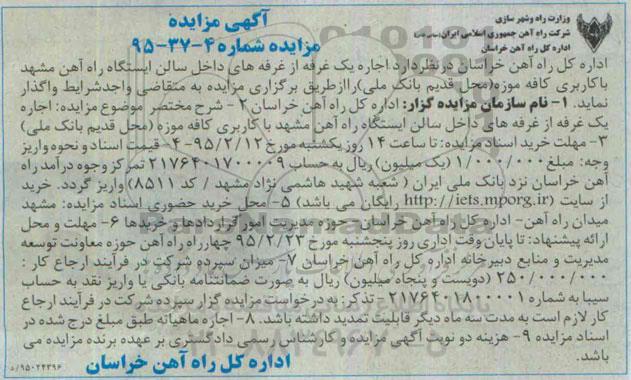 وزارت راه وشهر سازی
شرکت راه آهن جمهوری اسلامی ایران (سهامی خاص)
اداره کل راه آهن خراسان
آگهی مزایده
مزایده شماره ۴-۳۷-۹۵
اداره کل راه آهن خراسان درنظردارد اجاره یک غرفه از غرفه های داخل سالن ایستگاه راه آهن مشهد
باکاربری کافه موزه(محل قدیم بانک ملی)راازطریق برگزاری مزایده به متقاضی واجدشرایط واگذار
نماید. ۱- نام سازمان مزایده گزار: اداره کل راه آهن خراسان ۲- شرح مختصر موضوع مزایده: اجاره
یک غرفه از غرفه های داخل سالن ایستگاه راه آهن مشهد با کاربری کافه موزه (محل قدیم بانک ملی)
۳- مهلت خرید اسناد مزایده: تا ساعت ۱۴ روز یکشنبه مورخ ۹۵/۲/۱۲ ۴- قیمت اسناد و نحوه واریز
وجه: مبلغ ۱/۰۰۰/۰۰۰ (یک میلیون) ریال به حساب ۲۱۷۶۴۰۱۷۰۰۰۰۹ تمرکز وجوه درآمد راه
آهن خراسان نزد بانک ملی ایران ( شعبه شهید هاشمی نژاد مشهد / کد ۸۵۱۱) واریز گردد. خرید
از سایت (http://iets.mporg.ir رایگان می باشد) ۵- محل خرید حضوری اسناد مزایده: مشهد
میدان راه آهن- اداره کل راه آهن خراسان - حوزه مدیریت امور قراردادها و خریدها ۶- مهلت و محل
ارائه پیشنهاد: تا پایان وقت اداری روز پنجشنبه مورخ ۹۵/۲/۲۳ چهارراه راه آهن حوزه معاونت توسعه
مدیریت و منابع دبیرخانه اداره کل راه آهن خراسان ۷- میزان سپرده شرکت در فرآیند ارجاع کار :
۲۵۰/۰۰۰/۰۰۰ (دویست و پنجاه میلیون) ریال به صورت ضمانتنامه بانکی یا واریز نقد به حساب
سیبا به شماره ۲۱۷۶۴۰۱۸۰۰۰۰۱ - تذکر: به درخواست مزایده گزار سپرده شرکت در فرآیند ارجاع
کار لازم است به مدت سه ماه دیگر قابلیت تمدید داشته باشد. ۸- اجاره ماهیانه طبق مبلغ درج شده در
اسناد مزایده ۹- هزینه دو نوبت آگهی مزایده و کارشناس رسمی دادگستری بر عهده برنده مزایده می
باشد.
اداره کل راه آهن خراسان
۹۵۰۲۴۳۹۶/د